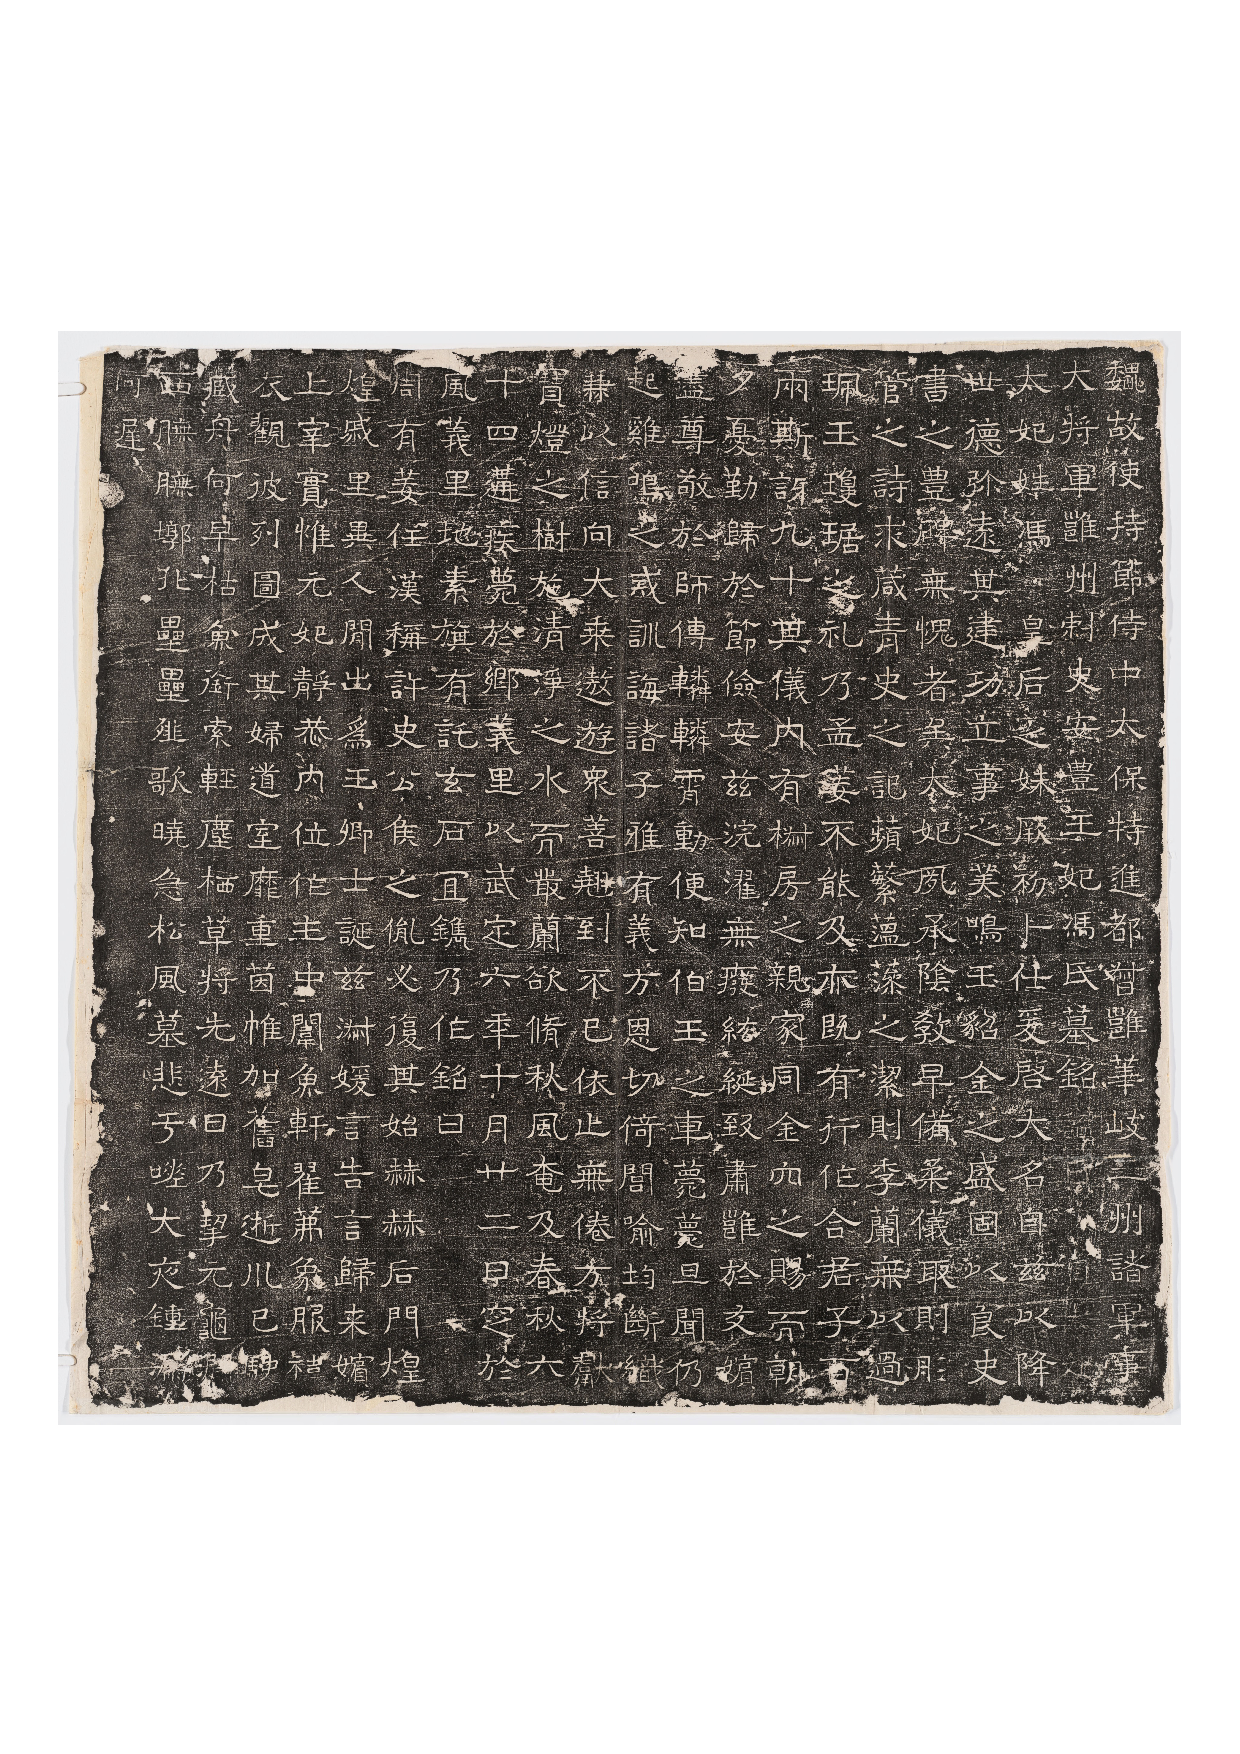 魏故使持節侍中太保特進都督雝華岐三州諸軍事
大將軍雝州刺史安豊王妃馮氏墓銘
太妃姓馮皇后之妹厥初卜仕爰啓大名自茲以降
世德弥遠其建功立事之美鳴玉貂金之盛固以良史
書之豊碑無愧者矣太妃夙承陰教早備柔儀取則彤
管之詩求箴青史之記蘋蘩薀藻之潔則季蘭無以過
珮玉瓊琚之礼乃孟姜不能及亦既有行作合君子百
兩斯訝九十其儀内有椒房之親家同金穴之賜而朝
夕憂勤歸於節儉安茲浣濯無癈紘綖致肅雝於友嬪
盡尊敬於師傅轔轔霄動便知伯玉之車薨薨旦聞仍
起雞鳴之戒訓誨諸子雅有義方恩切倚閭喻均斷織
兼以信向大乘遨遊衆善翹到不已依止無倦方將獻
寶燈之樹施清淨之水而叢蘭欲脩秋風奄及春秋六
十四遘疾薨於鄉義里以武定六年十月廿二日窆於
風義里地素旗有託玄石冝鐫乃作銘曰
周有姜任漢稱許史公侯之胤必復其始赫赫后門煌
煌戚里異人閒出爲王卿士誕茲淑媛言告言歸来嬪
上宰寔惟元妃靜恭内位作主中闈魚軒翟茀象服褘
衣觀彼列圖成其婦道室靡重茵帷加舊皂逝川已駛
藏舟何早枯魚銜索輕塵栖草將先遠日乃挈元龜
西膴膴墎北壘壘䢘歌曉急松風墓悲于嗟大夜鍾漏
何遲